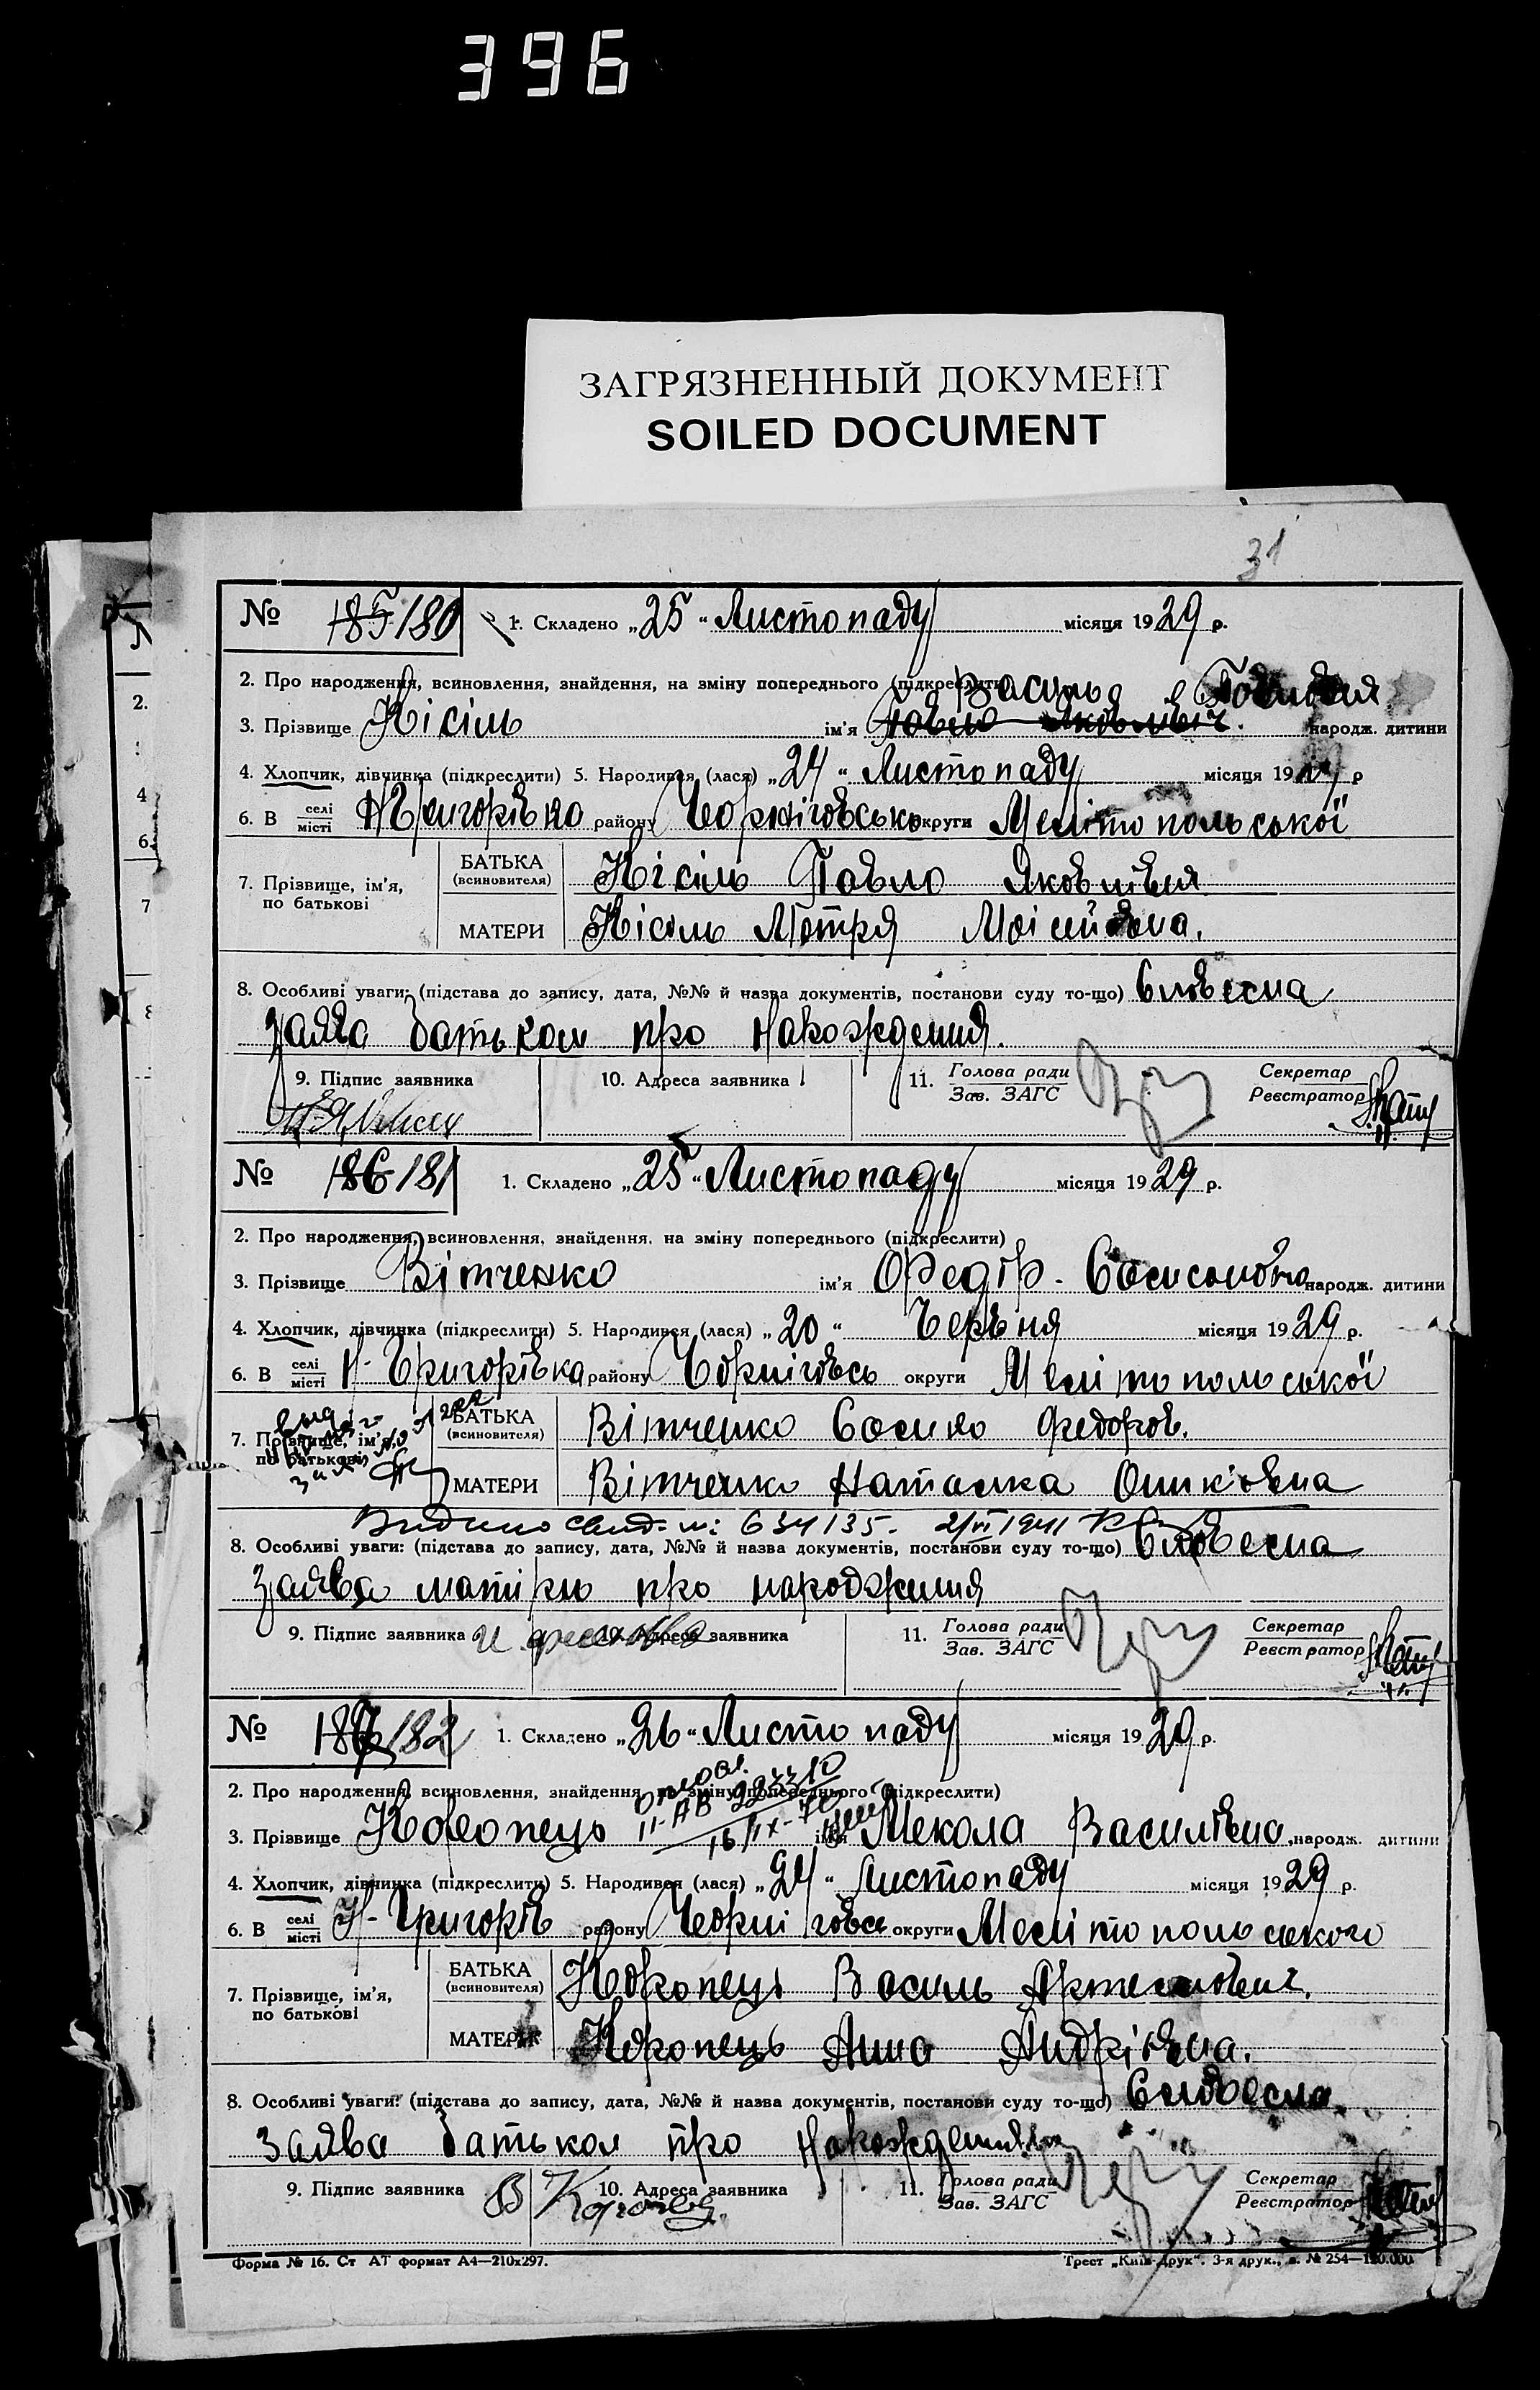 396
ЗАГРЯЗНЕННЫЙ ДОКУМЕНТ
SOILED DOCUMENT
31
№ 185 180 1. Складено „25“ Листопаду місяця 1929 р.
2. Про народження, всиновлення, знайдення, на зміну попереднього (підкреслити) Василь
3. Прізвище Кісіль ім'я Павло Яковлівіч. народж. дитини
4. Хлопчик, дівчинка (підкреслити) 5. Народився (лася) „24“ Листопаду місяця 1929 р
6. В селі місті Н Григорівка району Чорніговсько округи Мелітопольської
7. Прізвище, ім'я, по батькові
БАТЬКА (всиновителя) Кісіль Павло Яковлівия
МАТЕРИ Кісіль Мотря Моісеївна.
8. Особливі уваги: (підстава до запису, дата, №№ й назва документів, постанови суду то-що) Словесна
заява батьком про нарождения.
9. Підпис заявника 10. Адреса заявника 11. Голова ради Зав. ЗАГС Секретар Реєстратор
№ 186 181 1. Складено „25“ Листопаду місяця 1929 р.
2. Про народження, всиновлення, знайдення, на зміну попереднього (підкреслити)
3. Прізвище Вітченко ім'я Федір народж. дитини
4. Хлопчик, дівчинка (підкреслити) 5. Народився (лася) „20“ Червня місяця 1929 р.
6. В селі місті Н-Григорівка району Чорніговсь округи Мелітопольської
7. Прізвище, ім'я, по батькові
БАТЬКА (всиновителя) Вітченко Федоров.
МАТЕРИ Вітченко Наталка
Видано свид. №: 634135. 2/VI 1941
8. Особливі уваги: (підстава до запису, дата, №№ й назва документів, постанови суду то-що) Словесна
Заява матірю про народження
9. Підпис заявника 10. Адреса заявника 11. Голова ради Зав. ЗАГС Секретар Реєстратор
№ 187 182 1. Складено „26“ Листопаду місяця 1929 р.
2. Про народження, всиновлення, знайдення, на зміну попереднього (підкреслити)
II-АВ 223310
3. Прізвище Коропець ім'я Мекола Василівно народж. дитини
4. Хлопчик, дівчинка (підкреслити) 5. Народився (лася) „24“ Листопаду місяця 1929 р.
6. В селі місті Н-Григорів району Чорніговсь округи Мелітопольского
7. Прізвище, ім'я, по батькові
БАТЬКА (всиновителя) Коропець Василь Артемовіч.
МАТЕРИ Коропець Анна Андріївна.
8. Особливі уваги: (підстава до запису, дата, №№ й назва документів, постанови суду то-що) Словесна
заява батьком про нарождения
9. Підпис заявника 10. Адреса заявника 11. Голова ради Зав. ЗАГС Секретар Реєстратор
Форма № 16. Ст АТ формат А4—210x297. Трест „Київ-Друк“. 3-я друк., з. № 254—150.000